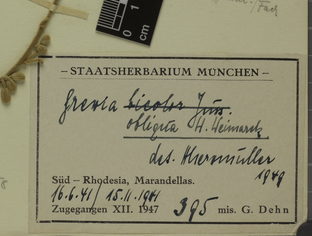 0 1 cm
– STAATSHERBARIUM MÜNCHEN –
Grewia bicolor Juss.
obliqua H. Weimarck
det. Merxmüller
1949
Süd – Rhodesia, Marandellas.
16.6.41 / 15.11.1941
Zugegangen XII. 1947 395 mis. G. Dehn